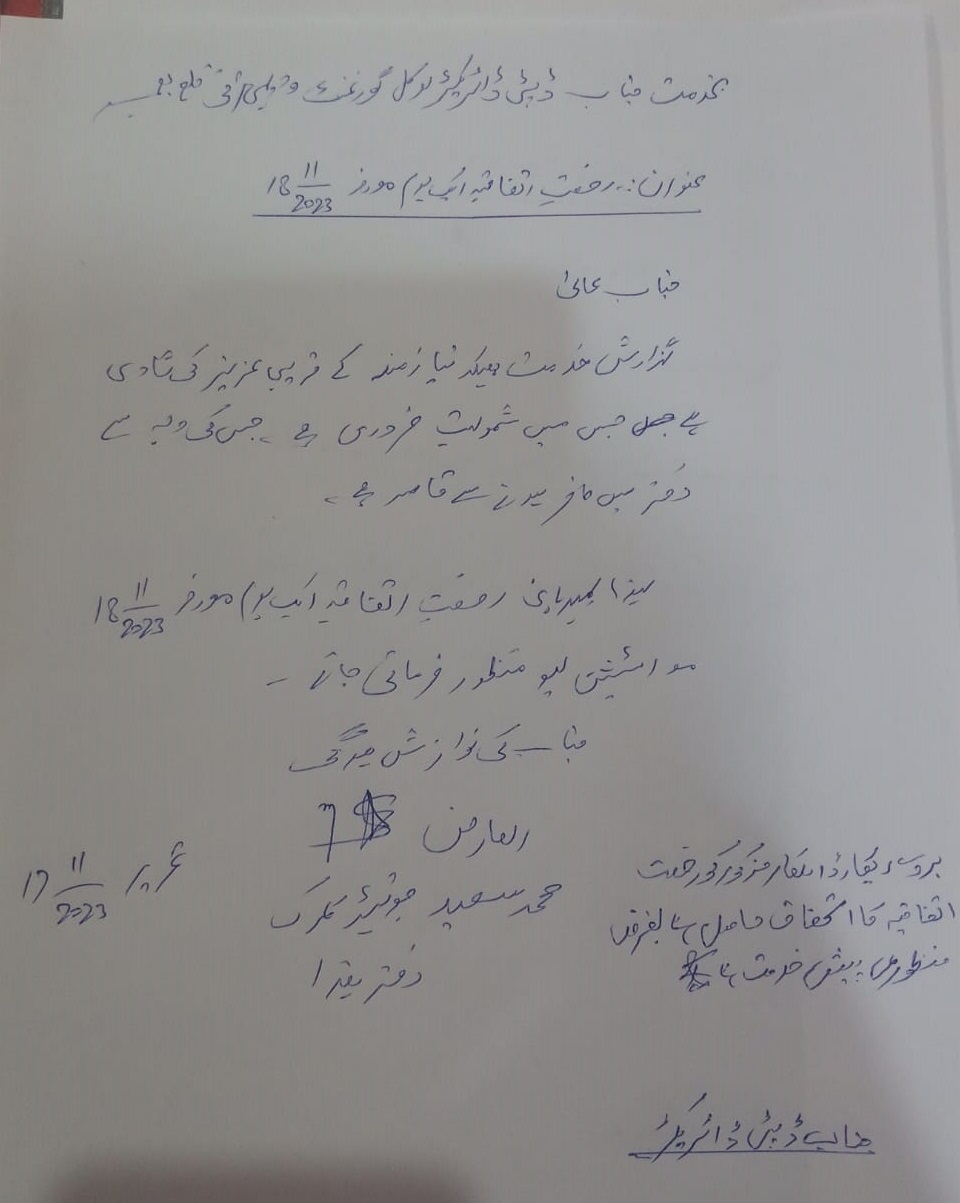 بخدمت جناب ڈپٹی ڈائریکٹر لوکل گورنمنٹ و دیہی ترقی ضلع
عنوان:۔ رخصتِ اتفاقیہ ایک یوم مورخہ 18 11/2023
جناب عالی!
گزارش خدمت ہیکہ نیازمند کے قریبی عزیز کی شادی
ہے جس میں شمولیت ضروری ہے ۔ جس کی وجہ سے
دفتر میں حاضر ہونے سے قاصر ہے ۔
لہذا بمہربانی رخصتِ اتفاقیہ ایک یوم مورخہ 18 11/2023
معہ اسٹیشن لیو منظور فرمائی جائے ۔
جناب کی نوازش ہوگی
العارض
محمد سعید جونیئر کلرک
دفتر ہذا
تحریر 17 11/2023
بروئے ریکارڈ اہلکار مذکور کو رخصت
اتفاقیہ کا استحقاق حاصل ہے بغرض
منظوری پیش خدمت ہے
جناب ڈپٹی ڈائریکٹر